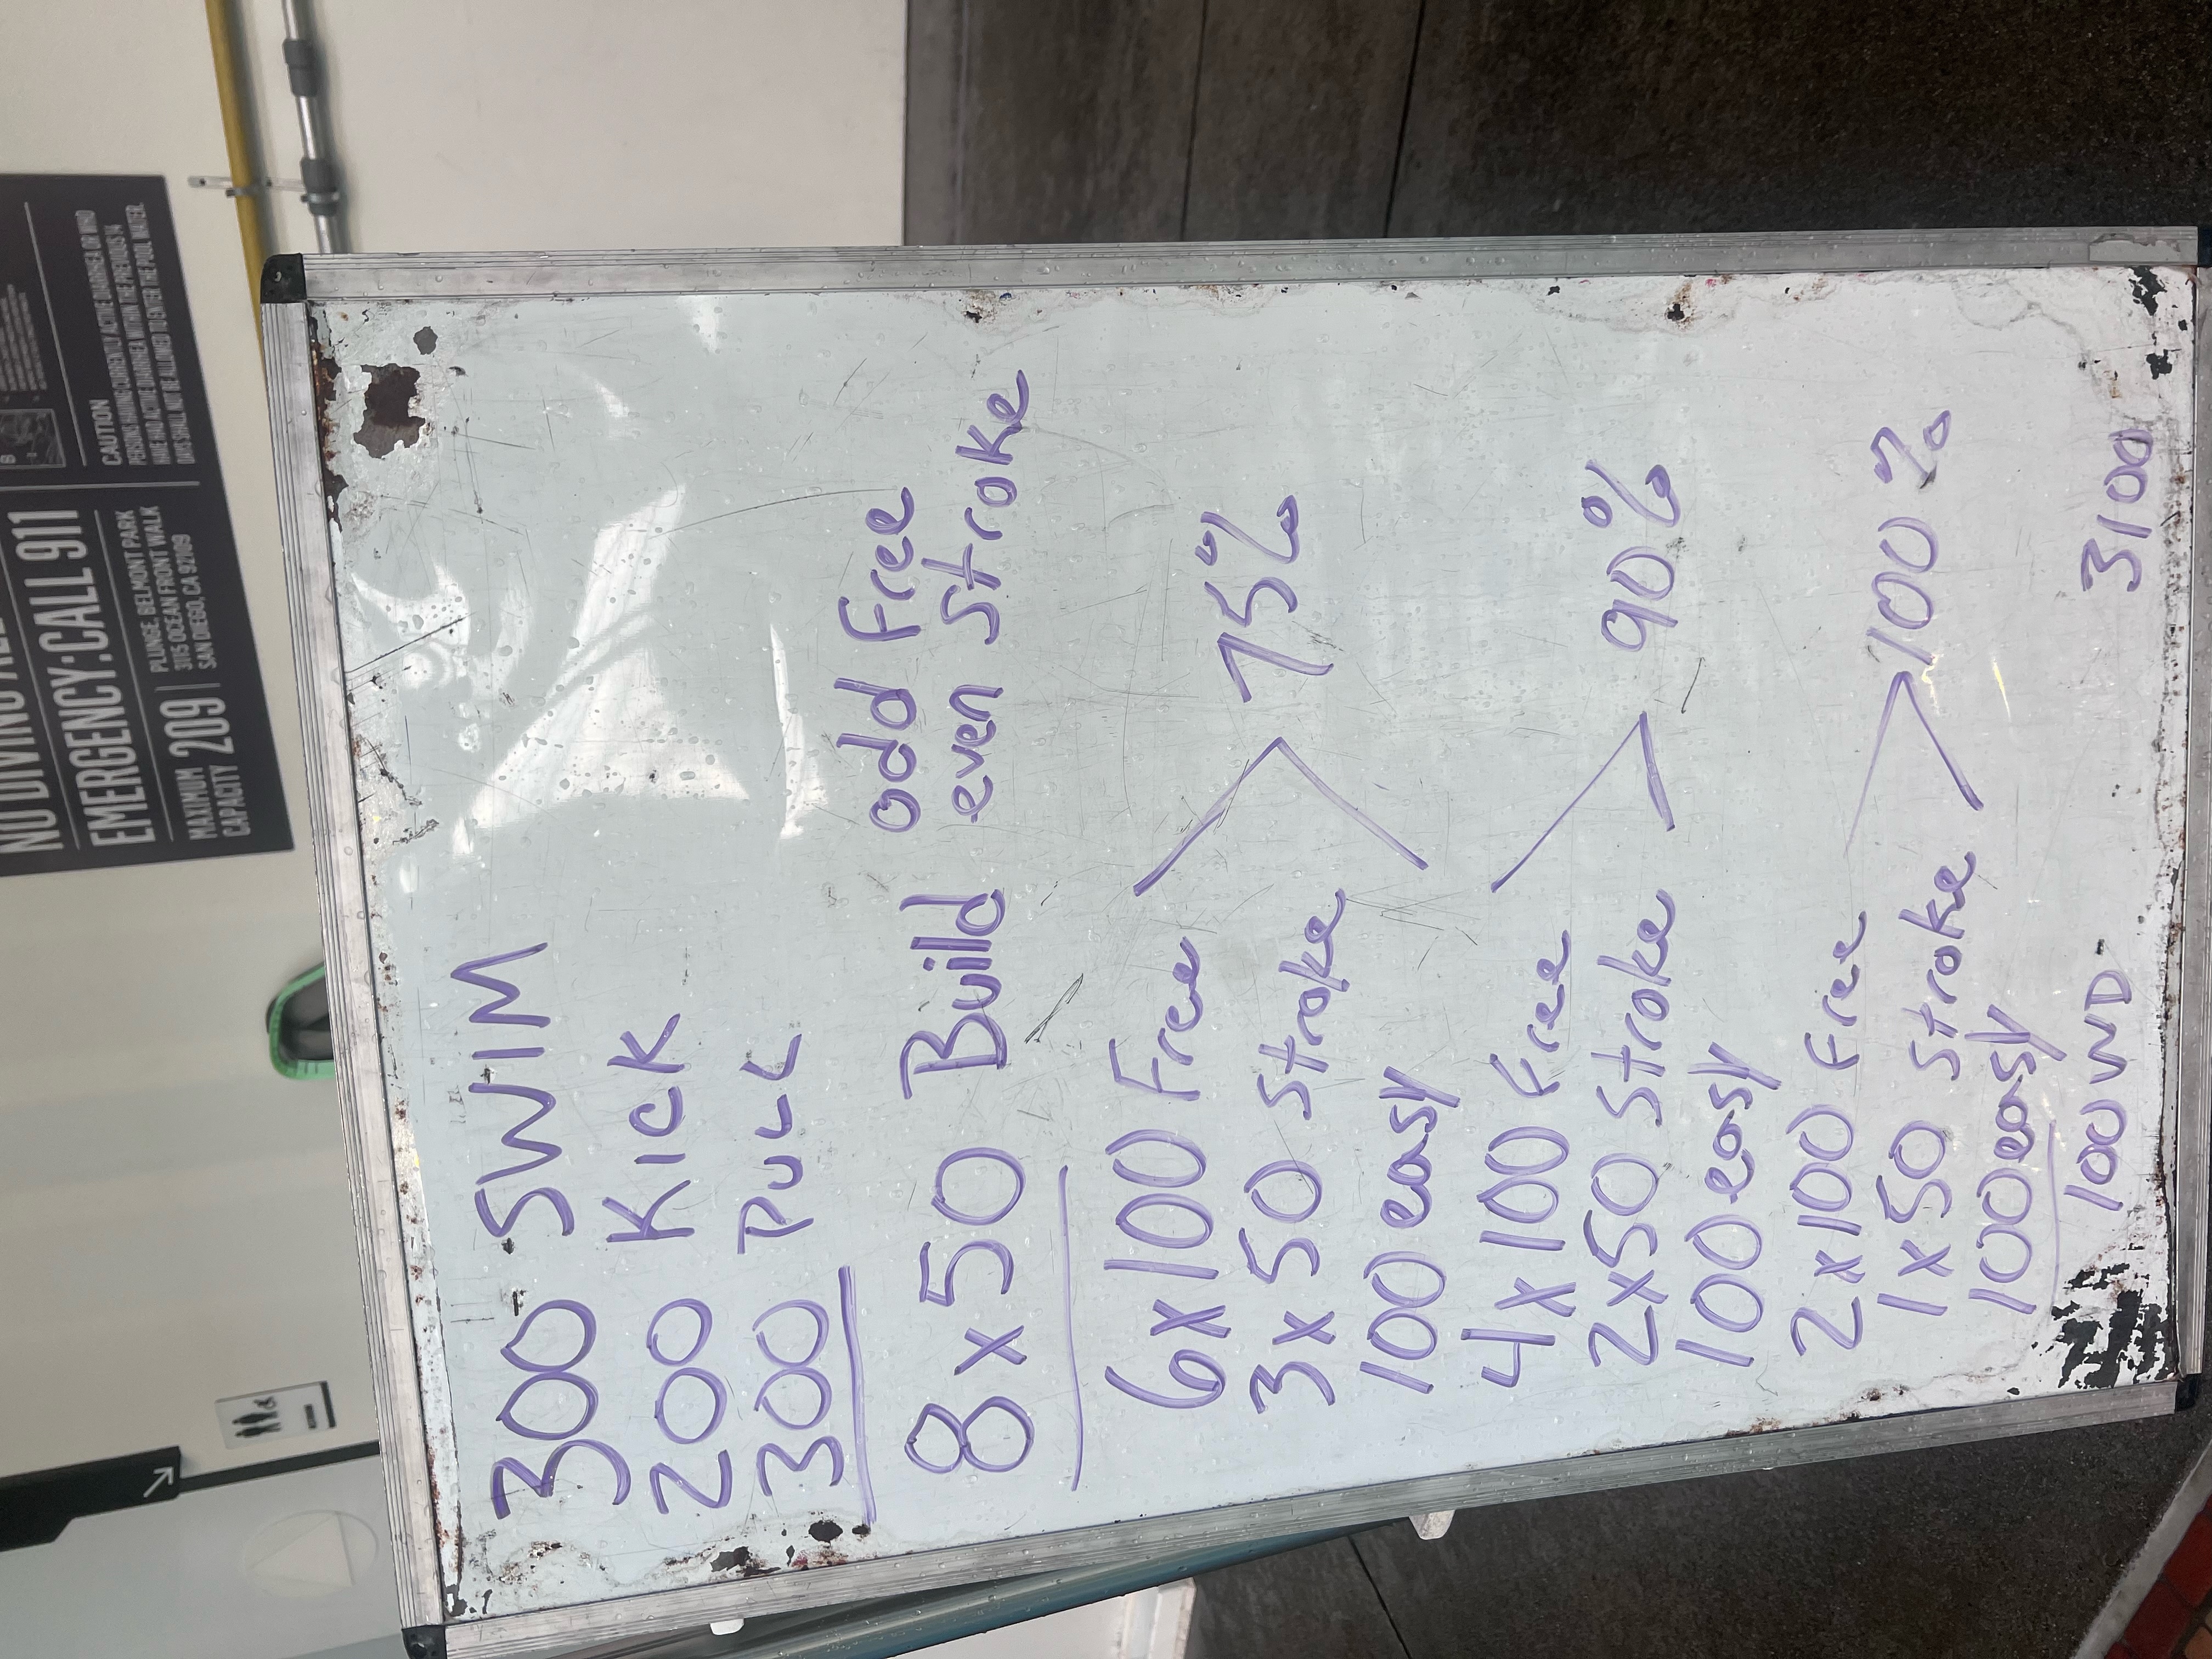 NO DIVING
EMERGENCY: CALL 911
MAXIMUM CAPACITY 209
PLUNGE, BELMONT PARK
3115 OCEAN FRONT WALK
SAN DIEGO, CA 92109
CAUTION
PERSONS HAVING CURRENTLY ACTIVE DIARRHEA OR WHO
HAVE HAD ACTIVE DIARRHEA WITHIN THE PREVIOUS 14
DAYS SHALL NOT BE ALLOWED TO ENTER THE POOL WATER.
300 SWIM
200 KICK
300 PULL
8 x 50 Build odd Free
even Stroke
6 x 100 Free
3 x 50 Stroke > 75%
100 easy
4 x 100 Free
2 x 50 Stroke > 90%
100 easy
2 x 100 Free
1 x 50 Stroke > 100%
100 easy
100 WD 3100